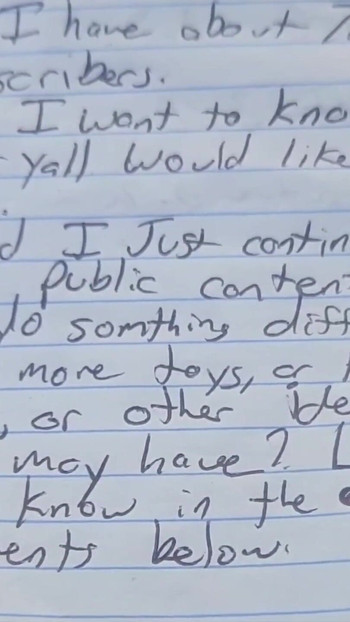 I have about
scribers.
I want to kno
yall would like
d I Just contin
public conten
do somthing diff
more toys, or
, or other ide
may have? L
know in the
ents below.